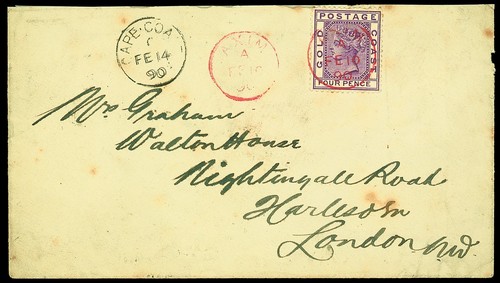 CAPE·COA
C
FE 14
90
A
POSTAGE
GOLD
COAST
FE 10
90
FOUR PENCE
Mrs Graham
Walton House
Nightingall Road
Harlesom
London NW.